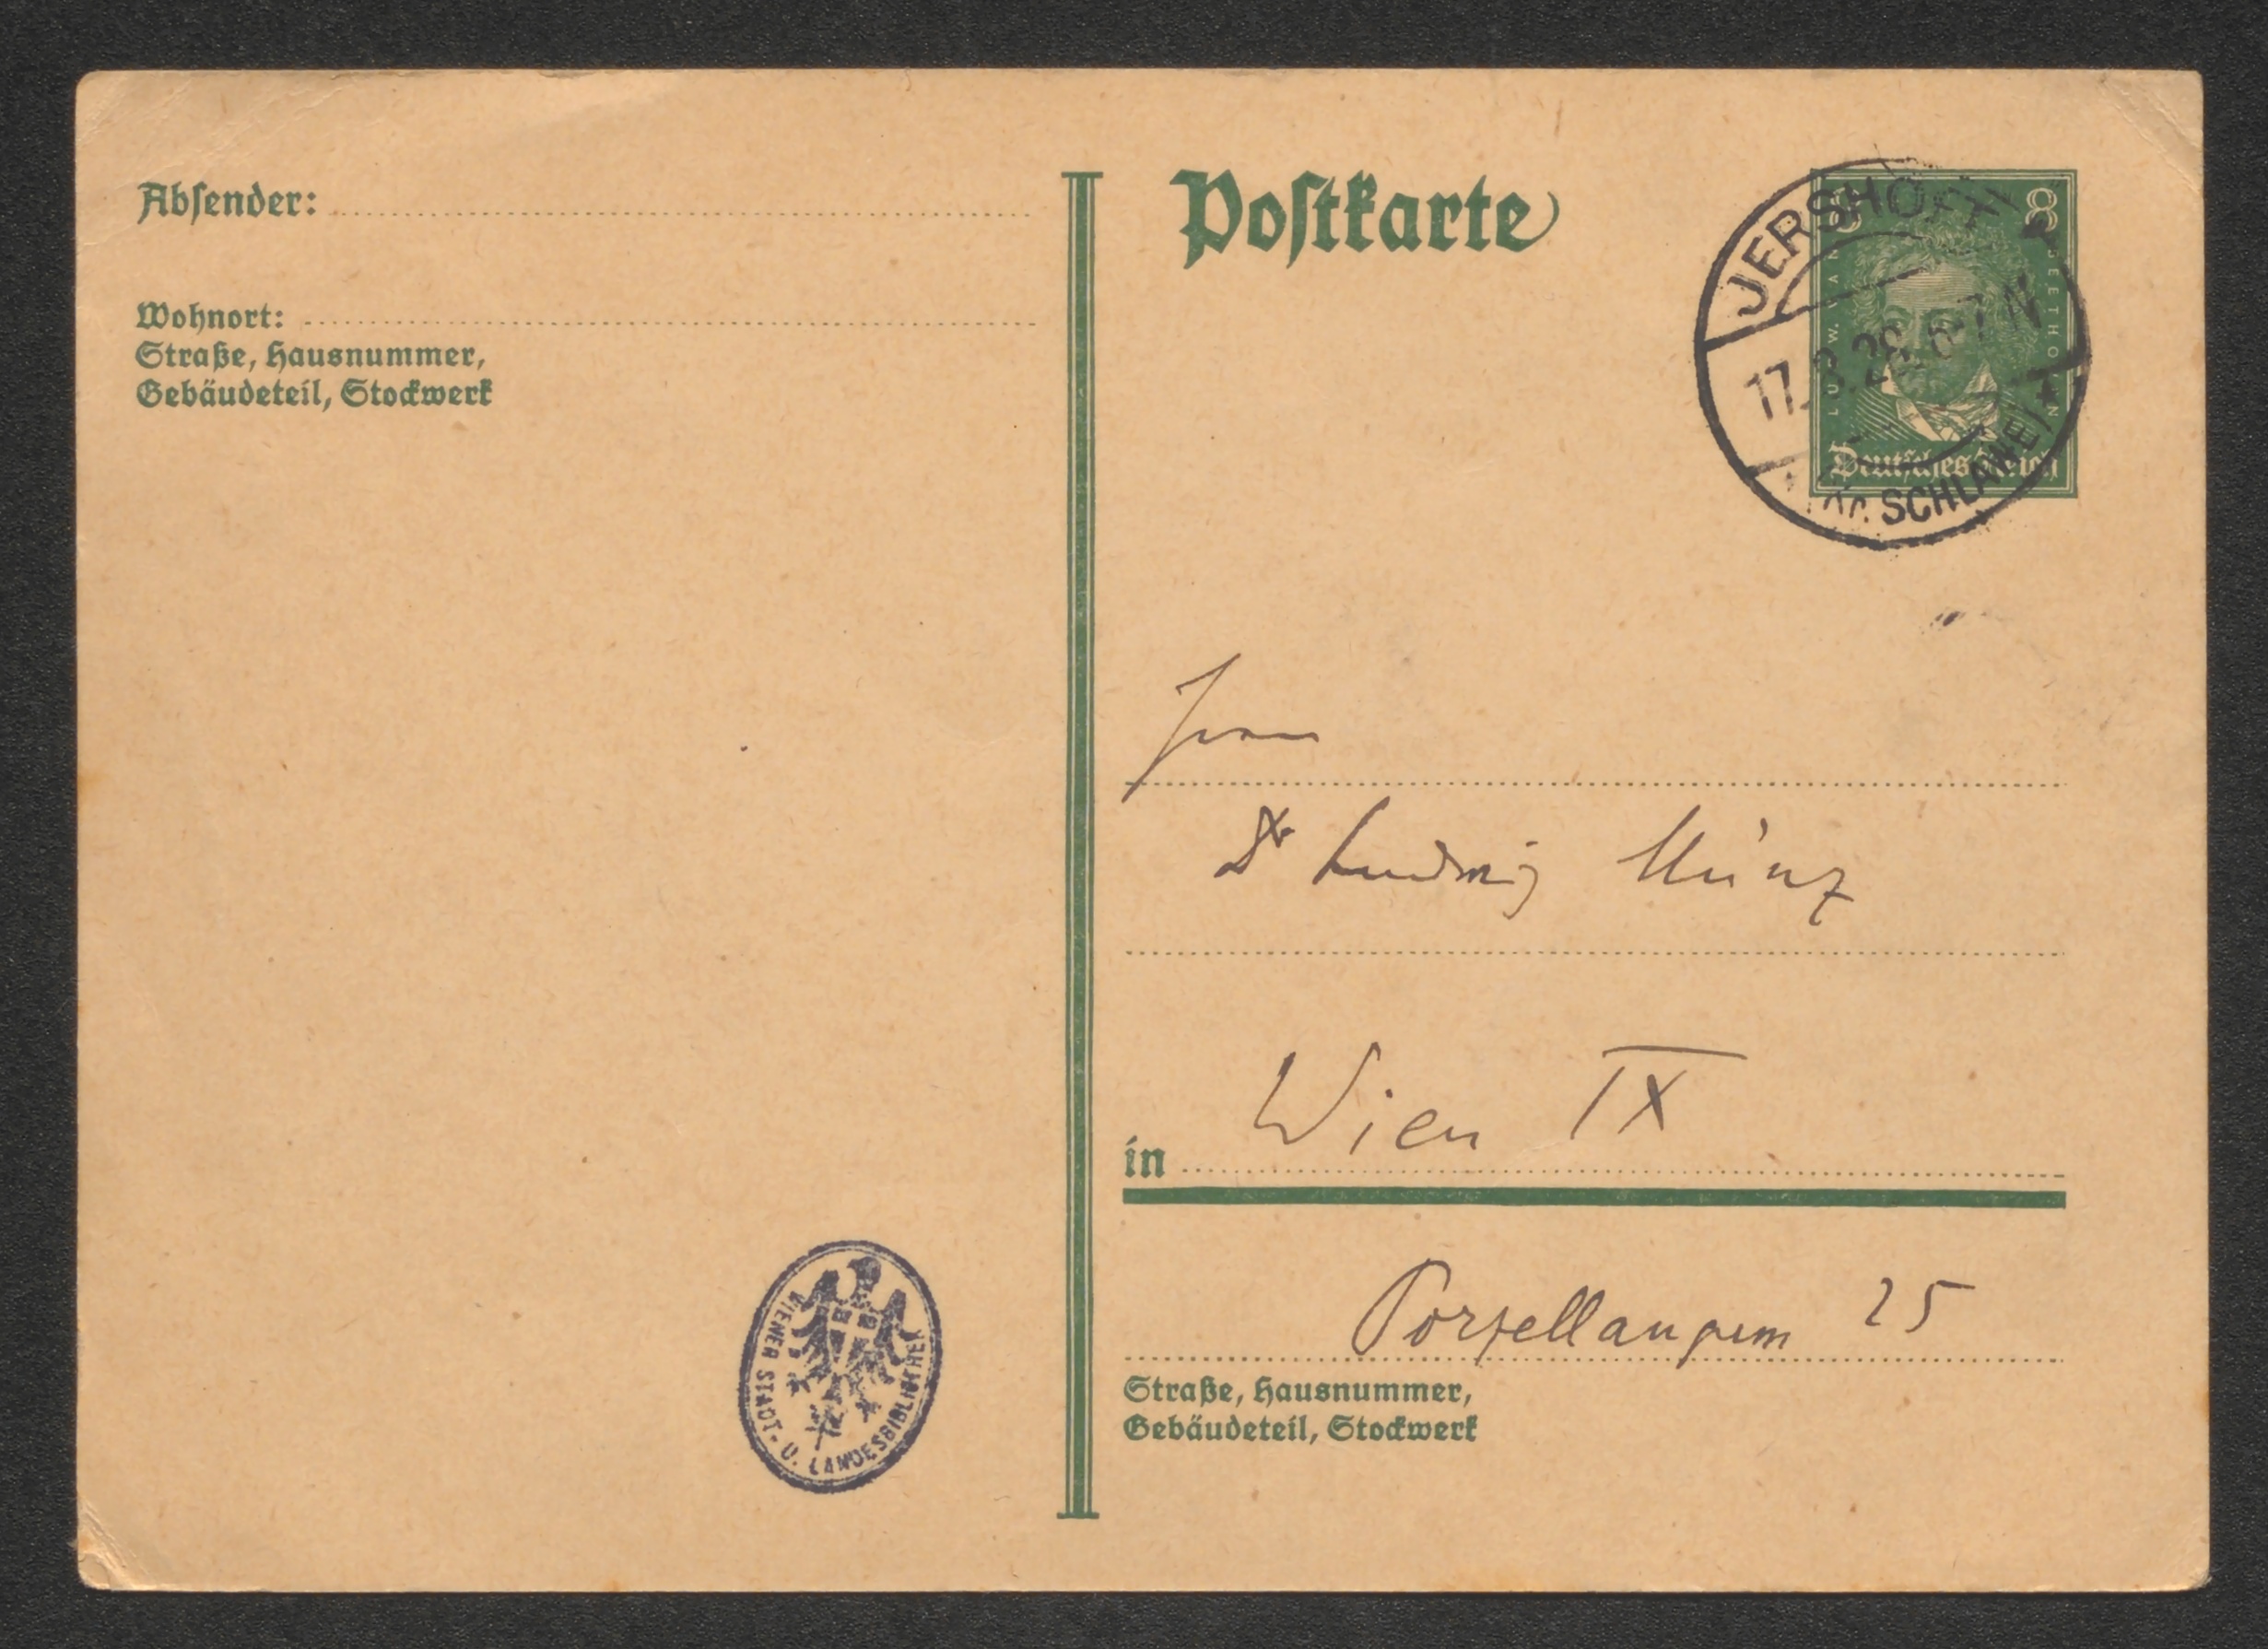 Absender:
Wohnort:
Straße, Hausnummer,
Gebäudeteil, Stockwerk
Postkarte
JERSHÖFT
17.8.28. 6-7 N
Kr. SCHLAWE
8
LUDW. VAN BEETHOVEN
Deutsches Reich
Dr Ludwig Münz
in Wien IX
Porzellangasse 25
Straße, Hausnummer,
Gebäudeteil, Stockwerk
WIENER STADT- U. LANDESBIBLIOTHEK